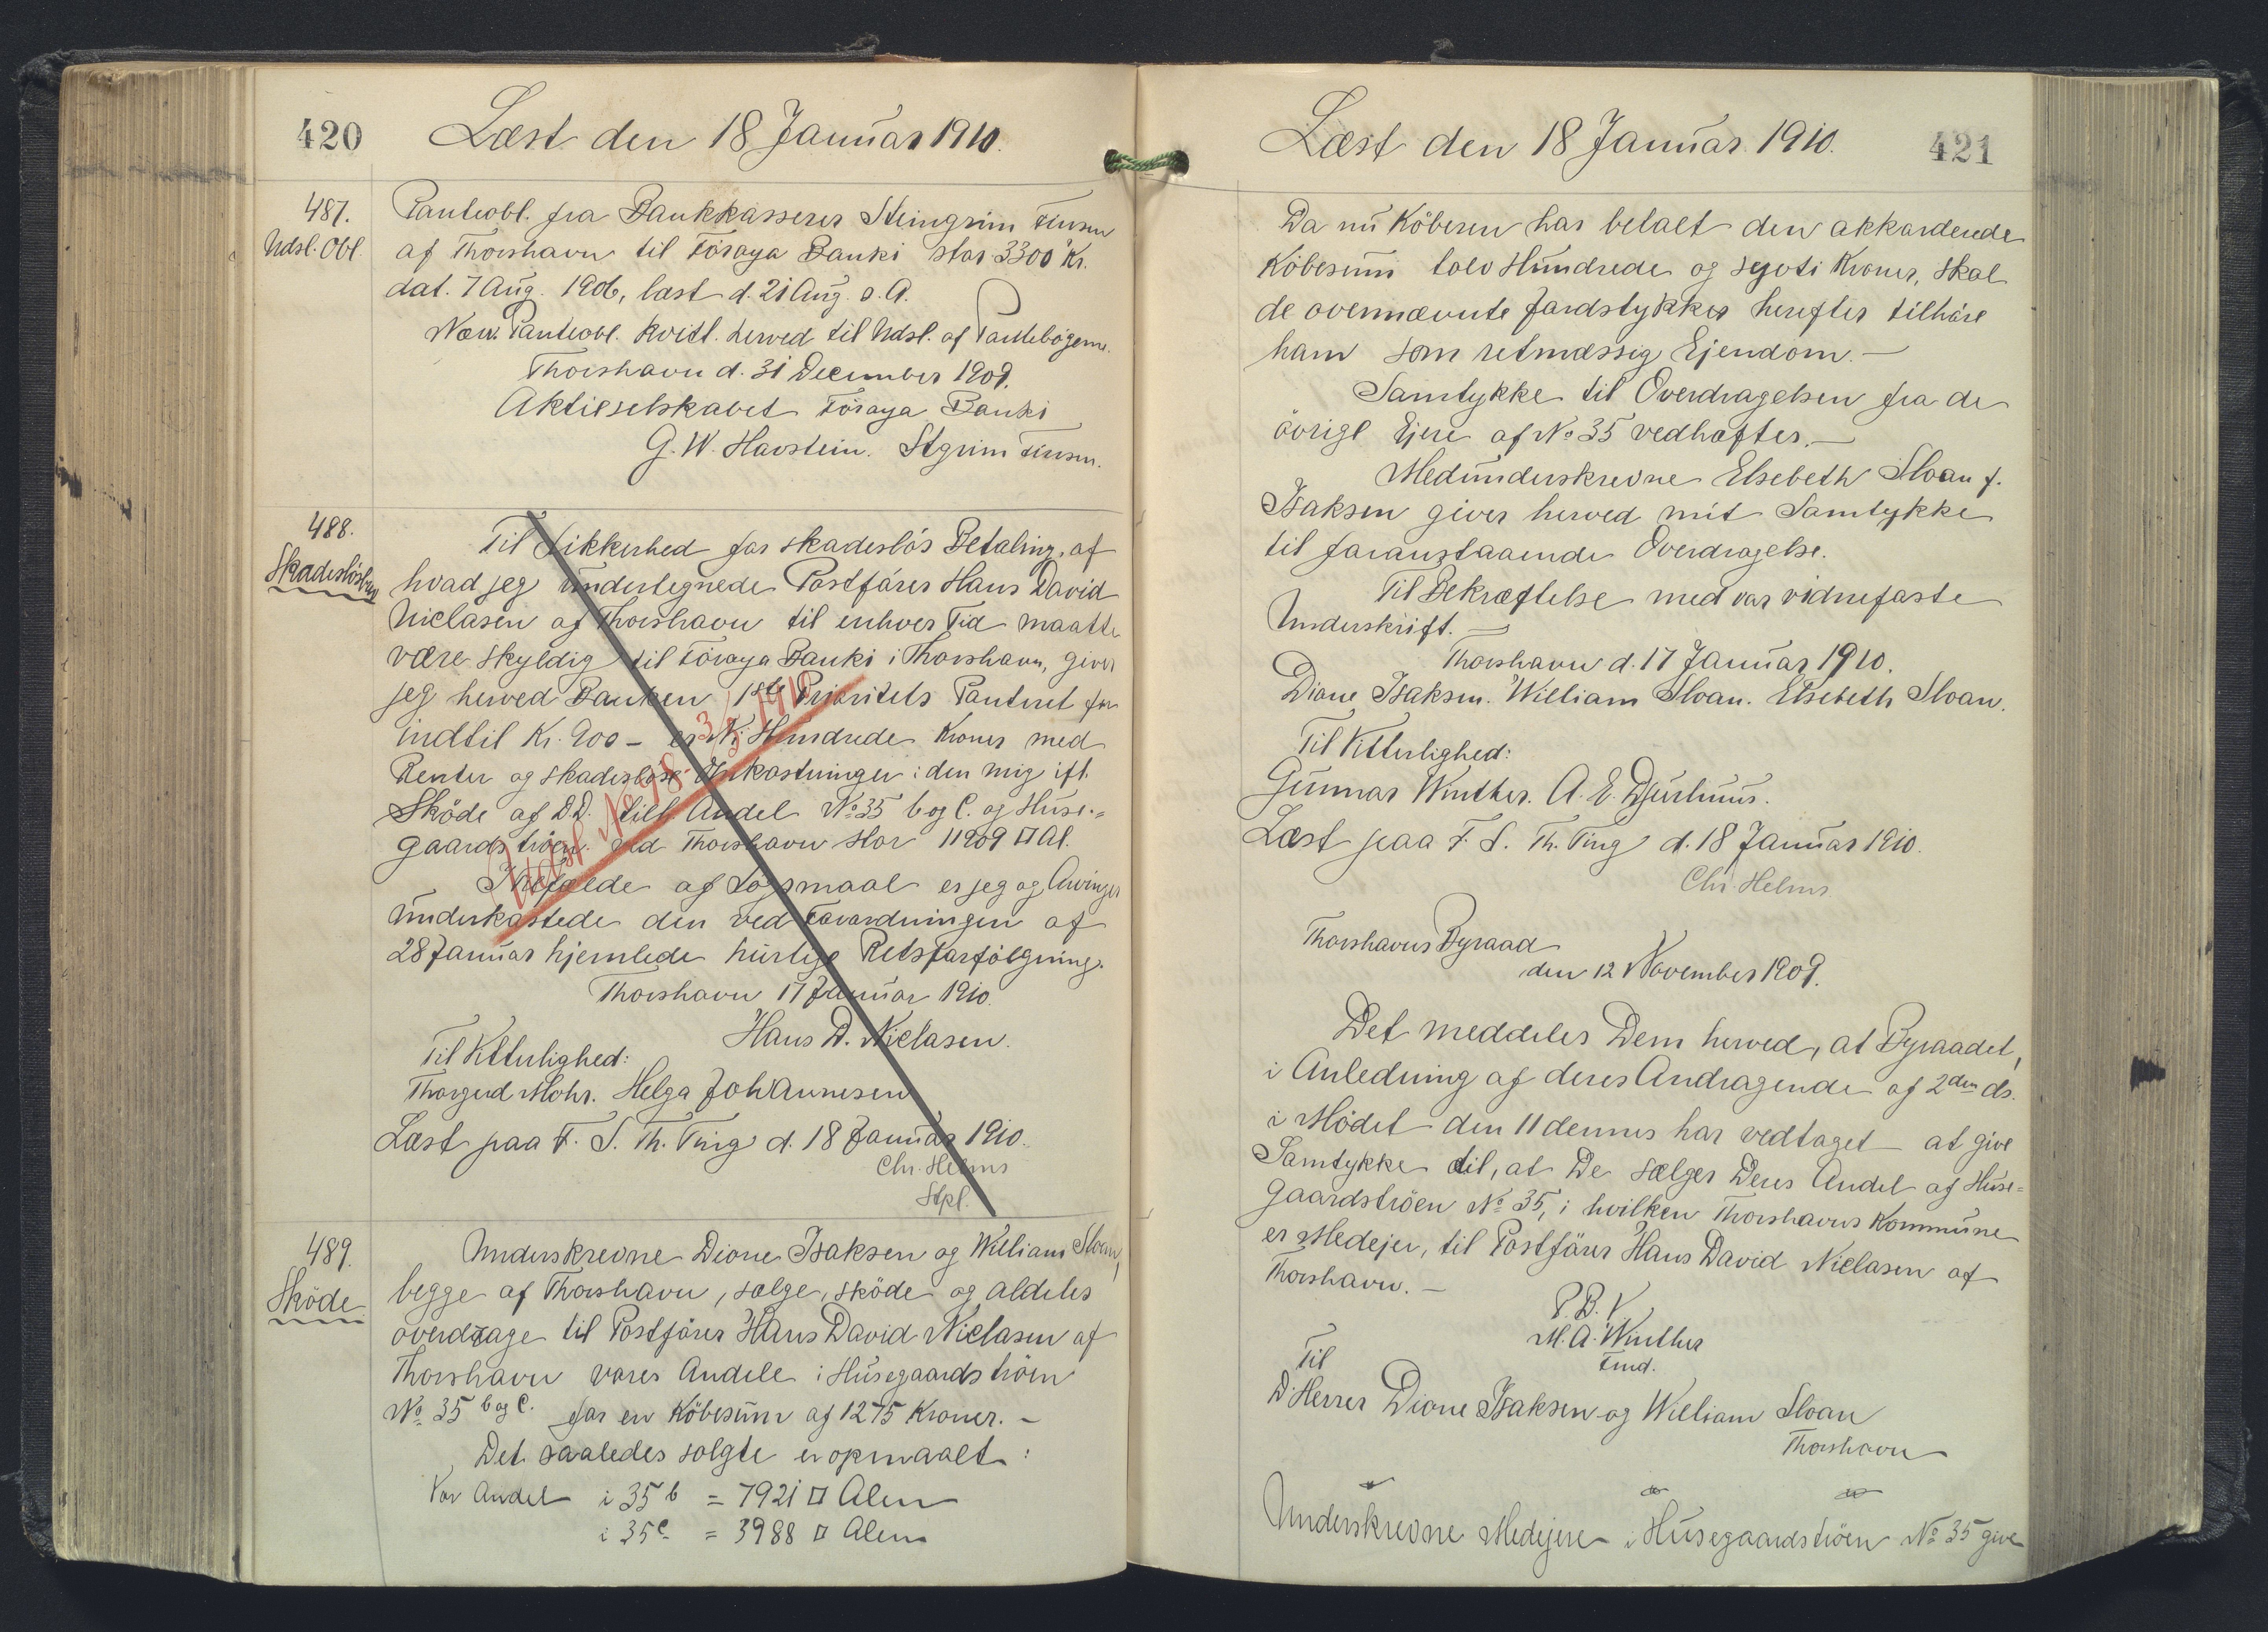 420
Læst den 18 Januar 1910.
487.
Udsl. Obl.
Panteobl. fra Bankkasserer Steingrim Finsen
af Thorshavn til Föroya Banki stor 3300 Kr.
dat. 7 Aug. 1906, læst d. 21 Aug. s. A.
Nærv. Panteobl. kvitt. herved til Udsl. af Pantebögerne.
Thorshavn d. 31 December 1909.
Aktieselskabet Föroya Banki
G. W. Havstein. Stgrim Finsen.
488.
Skadeslösbrev
Til Sikkerhed for skadeslös Betaling, af
hvad jeg undertegnede Postförer Hans David
Niclasen af Thorshavn til enhver Tid maatte
være skyldig til Föroya Banki i Thorshavn, giver
jeg herved Banken 1ste Prioritets Panteret for
indtil Kr. 900 - er Ni Hundrede Kroner med
Renter og skadeslöse Omkostninger i den mig ifl.
Sköde af D.D. tilh. Andel No 35 b og c. og Huse=
gaardströen ved Thorshavn stor 11909 □ Al.
I Tilfælde af Logsmaal er jeg og Arvinger
underkastede den ved Forordningen af
28 Januar hjemlede hurtige Retsforfölgning.
Thorshavn 17 Januar 1910.
Hans D. Niclasen.
Til Vitterlighed:
Thorgerd Mohr. Helga Johannesen
Læst paa F. S. Th. Ting d. 18 Januar 1910.
Chr. Helms
Stpl.
Udsl. No 98 1910
489.
Sköde
Underskrevne Dione Isaksen og William Sloan,
begge af Thorshavn, sælge, sköde og aldeles
overdrage til Postförer Hans David Niclasen af
Thorshavn vores Andele i Husegaardströen
No 35 b og c. for en Köbesum af 1275 Kroner. -
Det saaledes solgte er opmaalt:
Vor Andel i 35 b = 7921 □ Alen
i 35 c = 3988 □ Alen
Læst den 18 Januar 1910.
421
Da nu Köberen har betalt den akkorderede
Köbesum tolv Hundrede og syvti Kroner, skal
de ovennævnte Jordstykker herefter tilhöre
ham som retmæssig Ejendom. -
Samtykke til Overdragelsen fra de
övrige Ejere af No 35 vedhæftes. -
Medunderskrevne Elsebeth Sloan f.
Isaksen giver herved mit Samtykke
til foranstaaende Overdragelse.
Til Bekræftelse med vor vidnefaste
Underskrift. -
Thorshavn d. 17 Januar 1910.
Dione Isaksen. William Sloan. Elsebeth Sloan.
Til Vitterlighed:
Gunnar Winther. A. E. Djurhuus.
Læst paa F. S. Th. Ting d. 18 Januar 1910.
Chr. Helms
Thorshavns Byraad
den 12 November 1909.
Det meddeles Dem herved, at Byraadet,
i Anledning af deres Andragende af 2den ds.
i Mödet den 11 dennes har vedtaget at give
Samtykke til, at De sælger Deres Andel af Huse=
gaardströen No 35, i hvilken Thorshavns Kommune
er Medejer, til Postförer Hans David Niclasen af
Thorshavn. -
P. B. V.
M. A. Winther
Fmd.
Til
D'Herrer Dione Isaksen og William Sloan
Thorshavn
Underskrevne Medejere i Husegaardströen No 35 give